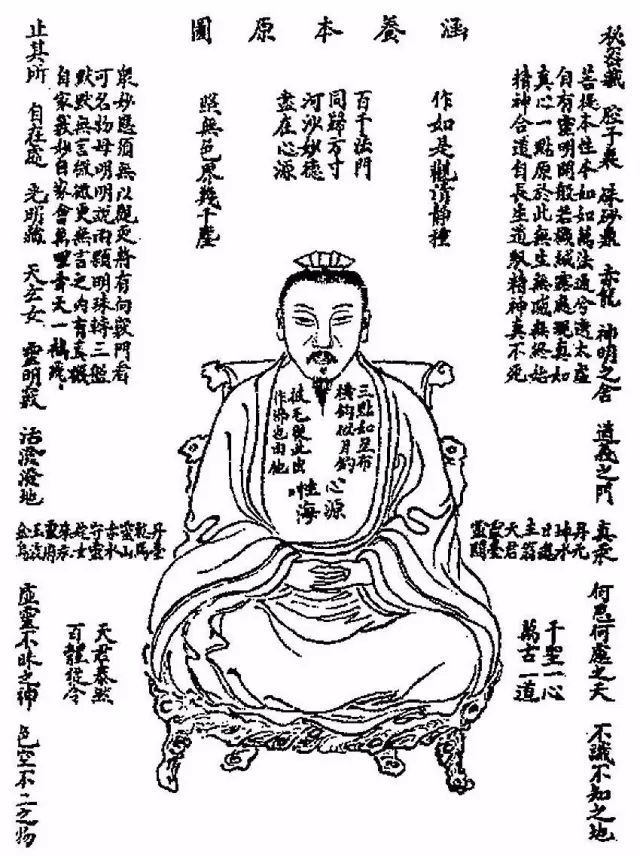 涵養本原圖
秘密藏 腔子裏 硃砂鼎 赤龍 神明之舍 道義之門 真汞 何思何慮之天 不識不知之地
菩提本性本如如萬法通兮透太虛
自有靈明開般若機緘露處現真如
真心一點原於此無生無滅無終始
精神合道自長生道馭精神真不死
作如是觀清淨種
百千法門
同歸方寸
河沙妙德
盡在心源
照無色界幾千塵
眾妙懸須無以觀更將有向竅門看
可名物母明明說兩顆明珠轉三盤
默默無言微微更無言之內有真機
自家我妙自家會萬里青天一鶴飛
止其所 自在處 光明藏 天玄女 靈明竅 活潑潑地 虛靈不昧之神 色空不二之物
三點如星布
橫鈎似月
披毛從此出
作佛也由他
心源
性海
丹元
坤水
日魂
主翁
天君
靈臺
靈關
丹臺
乾馬
靈山
赤水
守靈
姹女
朱汞
靈府
玉液
金烏
千聖一心
萬古一道
天君泰然
百體從令